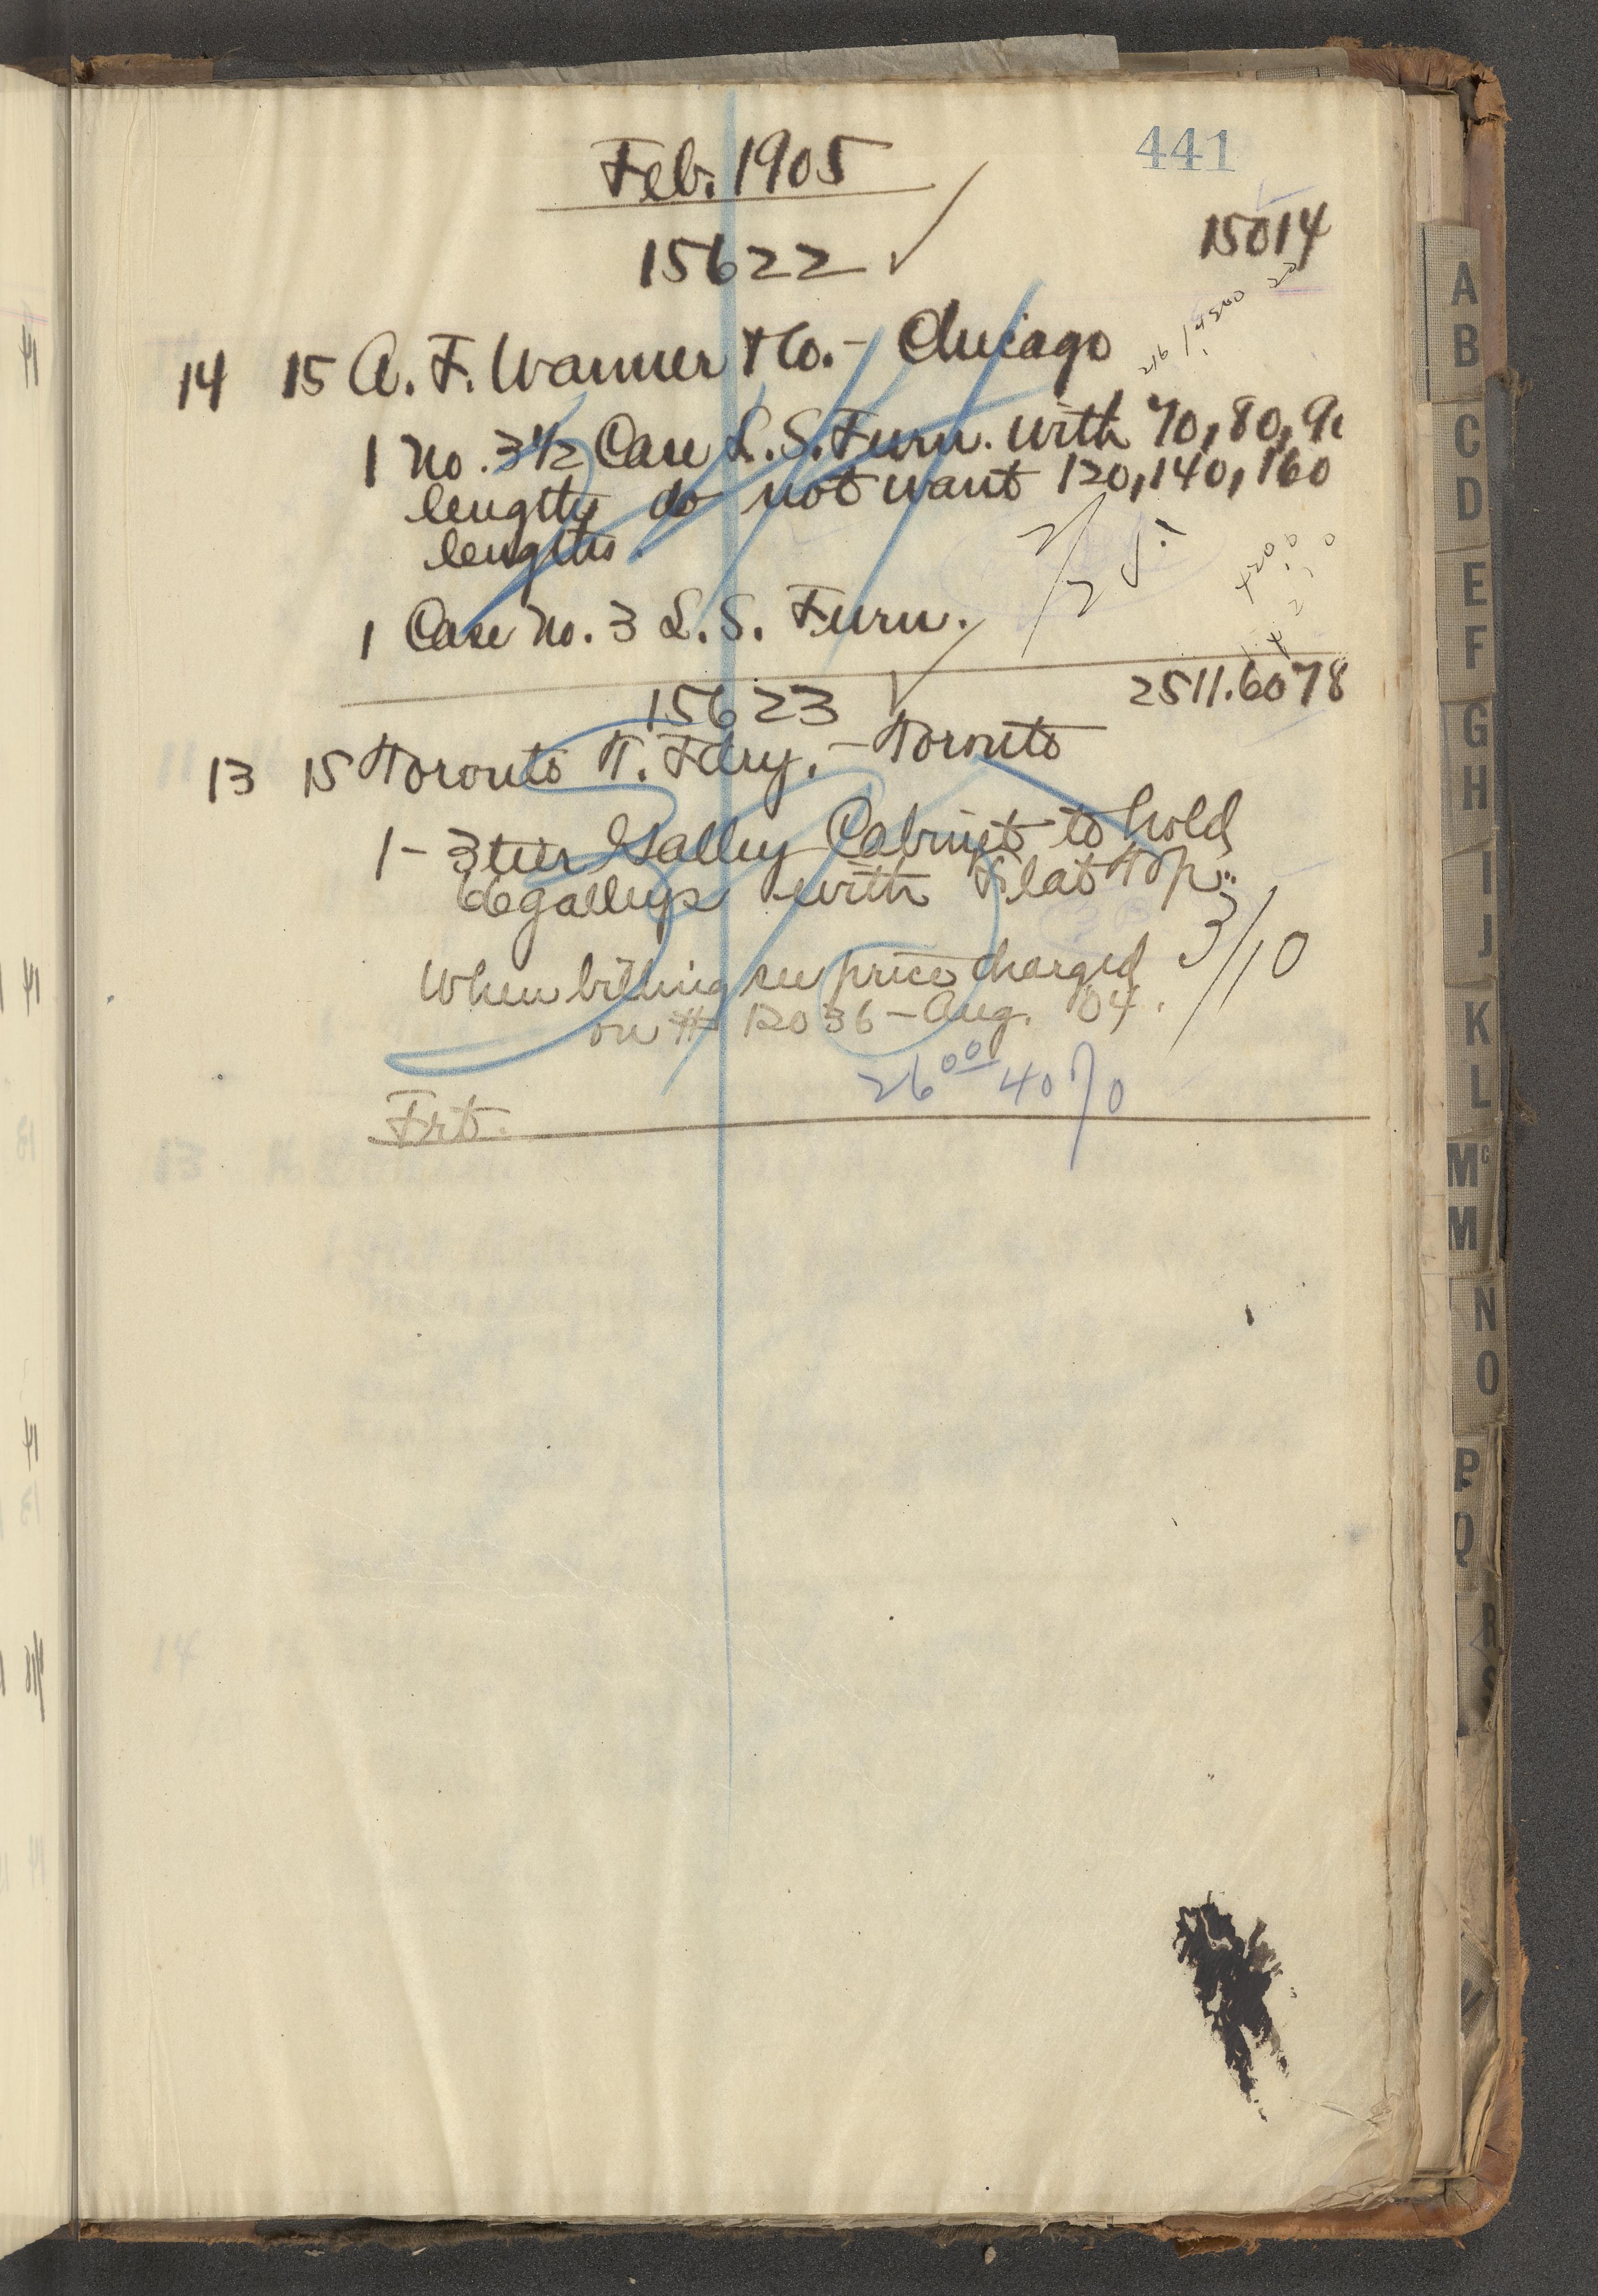 441
Feb. 1905
15622 ✓
15014
14 15 A. F. Wanner & Co. - Chicago
1 No. 3 1/2 Case L. S. Furn. with 70, 80, 90
lengths do not want 120, 140, 160
lengths.
1 Case No. 3 L. S. Furn.
15623 ✓ 2511.6078
13 15 Toronto T. Fdry. - Toronto
1 - 3 tier Galley Cabinet to hold
66 galleys with Flat Top.
3/10
When billing see price charged
on # 12036 - Aug. '04.
26 00 40%
Frt.
A
B
C
D
E
F
G
H
I
J
K
L
Mc
M
N
O
P
Q
R